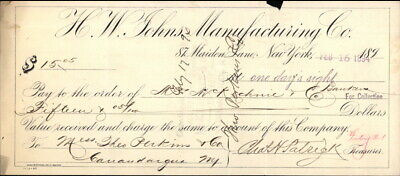 H. W. Johns Manufacturing Co.
87 Maiden Lane, New York, FEB 15 1894 189
$15.05 At one day's sight
Pay to the order of McKechnie & Co Bankers
For Collection
Fifteen & 05/100 Dollars
Value received and charge the same to account of this Company.
To Mess. Theo Perkins & Co
Canandaigua NY. Chas H Patrick
Treasurer.